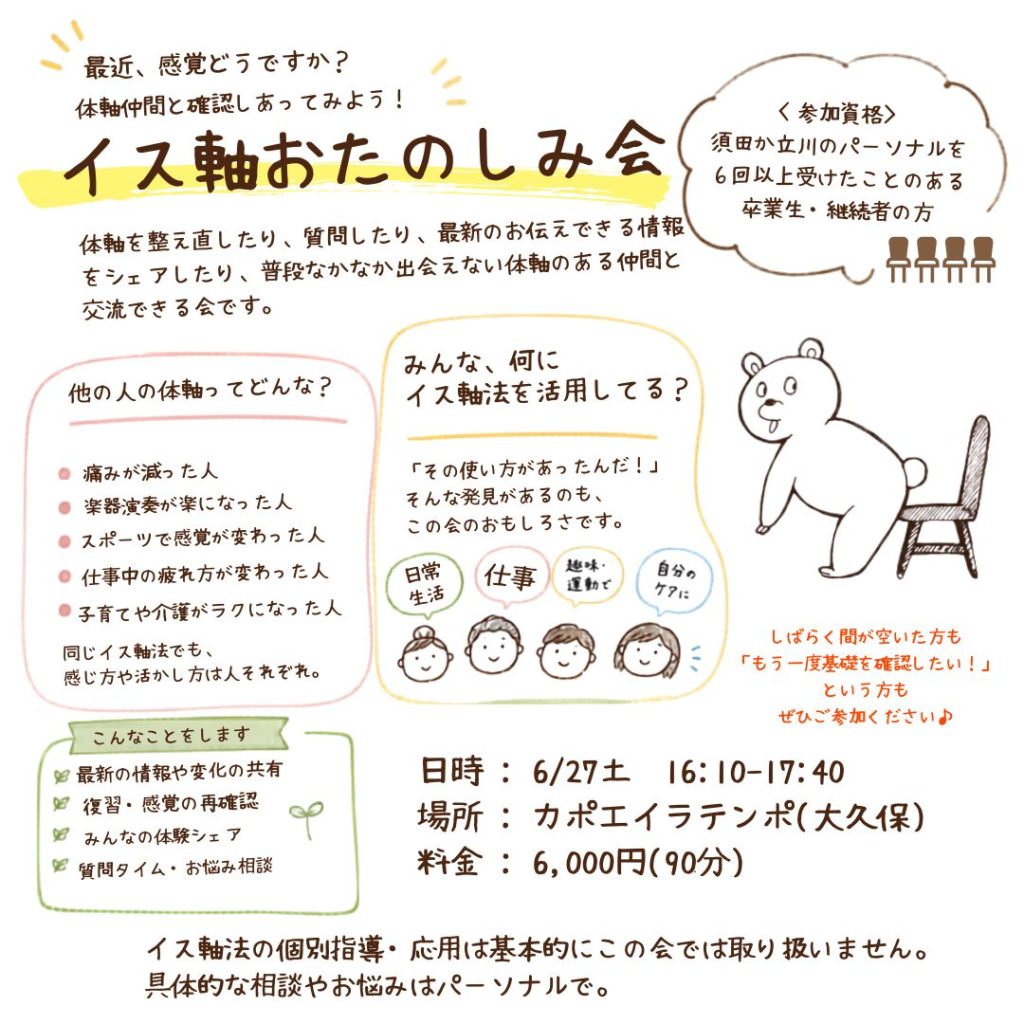 最近、感覚どうですか?
体軸仲間と確認しあってみよう!
イス軸おたのしみ会
〈参加資格〉
須田か立川のパーソナルを
6回以上受けたことのある
卒業生・継続者の方
体軸を整え直したり、質問したり、最新のお伝えできる情報
をシェアしたり、普段なかなか出会えない体軸のある仲間と
交流できる会です。
他の人の体軸ってどんな?
痛みが減った人
楽器演奏が楽になった人
スポーツで感覚が変わった人
仕事中の疲れ方が変わった人
子育てや介護がラクになった人
同じイス軸法でも、
感じ方や活かし方は人それぞれ。
みんな、何に
イス軸法を活用してる?
「その使い方があったんだ!」
そんな発見があるのも、
この会のおもしろさです。
日常
生活
仕事
趣味・
運動で
自分の
ケアに
しばらく間が空いた方も
「もう一度基礎を確認したい!」
という方も
ぜひご参加ください♪
こんなことをします
最新の情報や変化の共有
復習・感覚の再確認
みんなの体験シェア
質問タイム・お悩み相談
日時 : 6/27土 16:10-17:40
場所 : カポエイラテンポ(大久保)
料金 : 6,000円(90分)
イス軸法の個別指導・応用は基本的にこの会では取り扱いません。
具体的な相談やお悩みはパーソナルで。